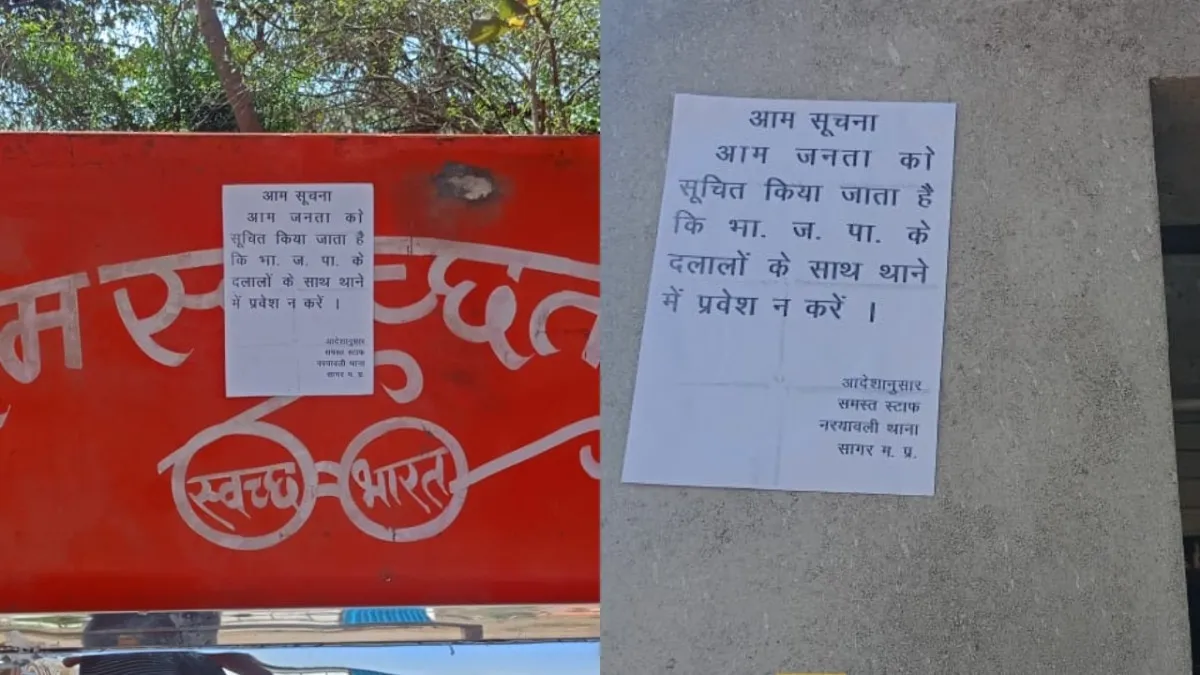 आम सूचना
आम जनता को
सूचित किया जाता है
कि भा. ज. पा. के
दलालों के साथ थाने
में प्रवेश न करें ।
आदेशानुसार
समस्त स्टाफ
नरयावली थाना
सागर म. प्र.
स्वच्छ भारत
आम सूचना
आम जनता को
सूचित किया जाता है
कि भा. ज. पा. के
दलालों के साथ थाने
में प्रवेश न करें ।
आदेशानुसार
समस्त स्टाफ
नरयावली थाना
सागर म. प्र.